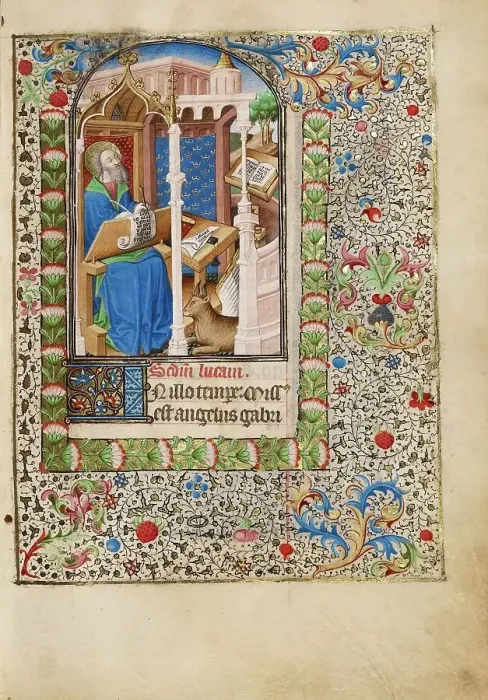 Scd̄m lucam.
N illo tempr̄e: Miss⁹
est angelus gabri